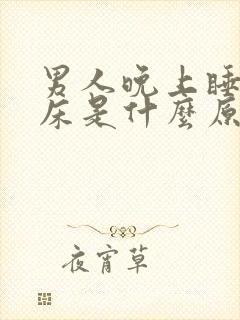 男人晚上睡
床是什麼原
夜宵草